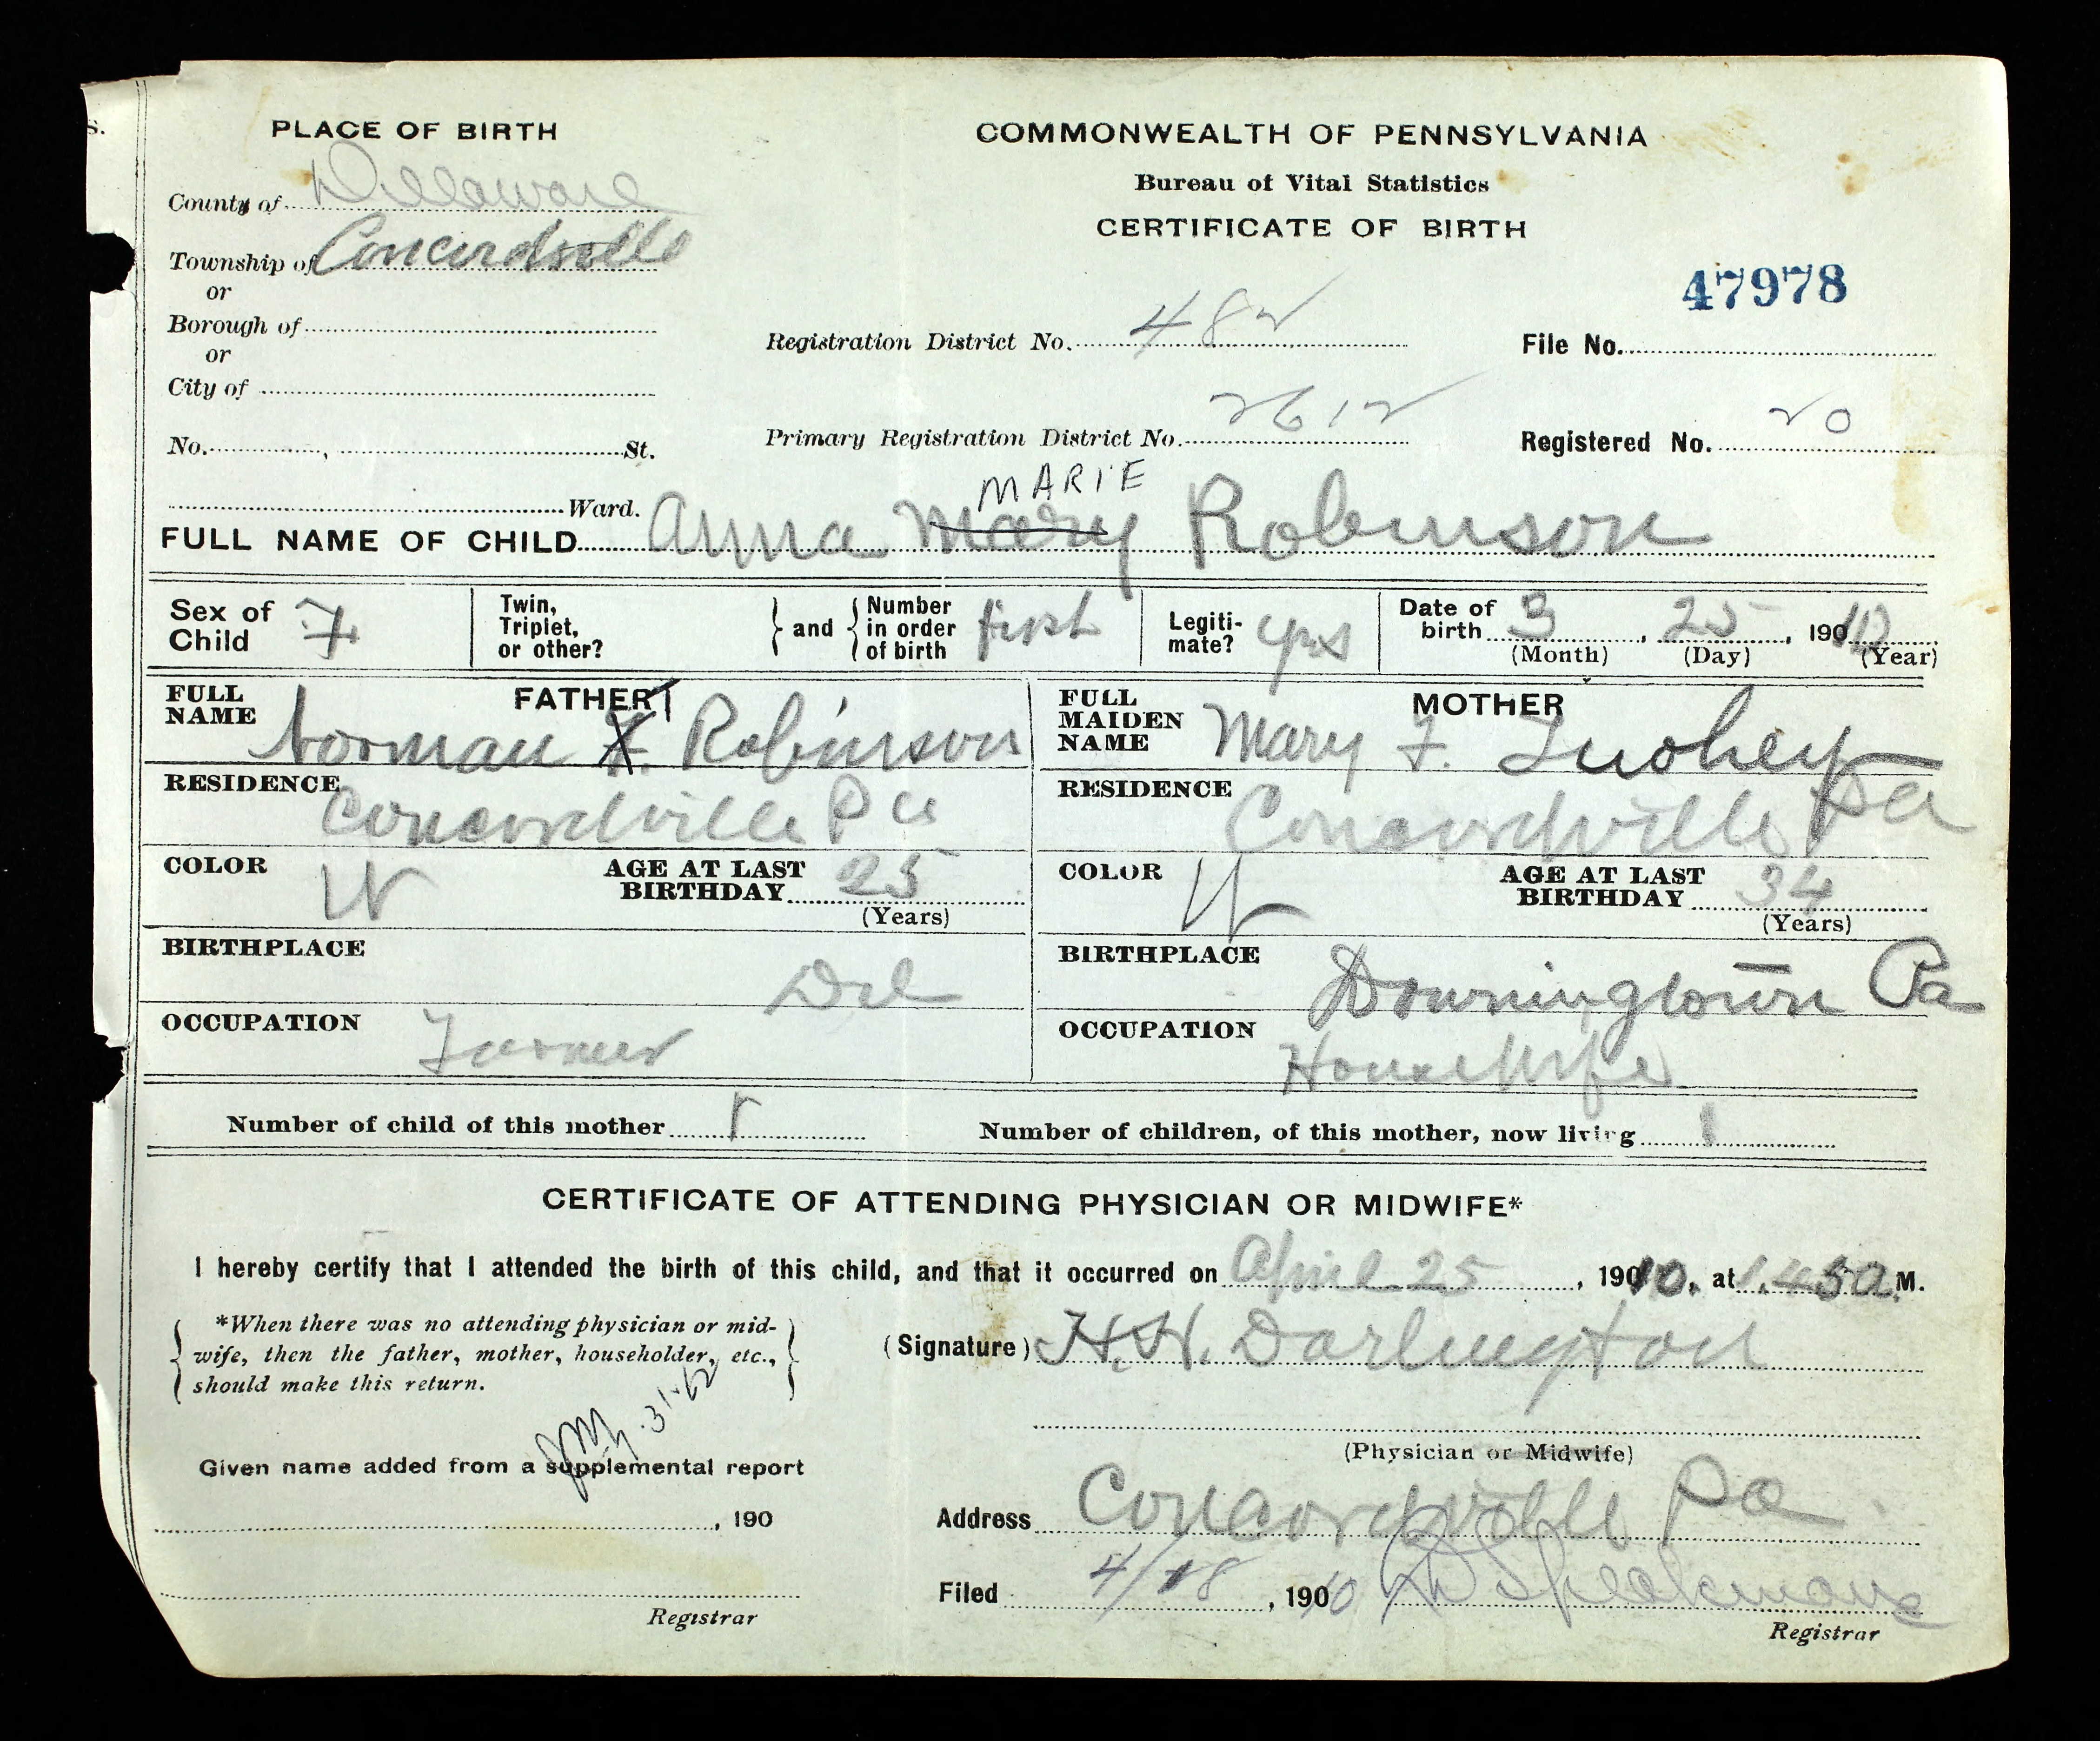 s.
PLACE OF BIRTH
County of Delaware
Township of Concordville
or
Borough of
or
City of
No. , St.
Ward.
COMMONWEALTH OF PENNSYLVANIA
Bureau of Vital Statistics
CERTIFICATE OF BIRTH
47978
Registration District No. 482
File No.
Primary Registration District No. 2612
Registered No. 20
MARIE
FULL NAME OF CHILD Anna Mary Robinson
Sex of Child F
Twin, Triplet, or other? } and { Number in order of birth first
Legitimate? yes
Date of birth 3, 25, 1910
(Month) (Day) (Year)
FATHER
FULL NAME Norman Robinson
RESIDENCE Concordville Pa
COLOR W AGE AT LAST BIRTHDAY 25
(Years)
BIRTHPLACE Del
OCCUPATION Farmer
MOTHER
FULL MAIDEN NAME Mary F. Tuohey
RESIDENCE Concordville Pa
COLOR W AGE AT LAST BIRTHDAY 34
(Years)
BIRTHPLACE Downingtown Pa
OCCUPATION Housewife
Number of child of this mother 1
Number of children, of this mother, now living 1
CERTIFICATE OF ATTENDING PHYSICIAN OR MIDWIFE*
I hereby certify that I attended the birth of this child, and that it occurred on April 25, 1910, at 1.45 a. M.
*When there was no attending physician or mid-
wife, then the father, mother, householder, etc.,
should make this return.
(Signature) H. H. Darlington
(Physician or Midwife)
Given name added from a supplemental report
, 190
Registrar
Address Concordville Pa
Filed 4/28, 1910 Speakman
Registrar